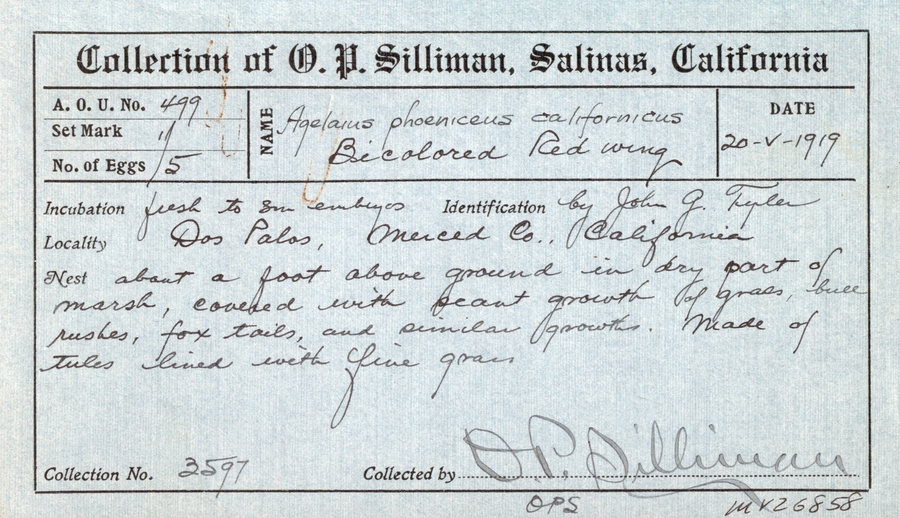 Collection of O. P. Silliman, Salinas, California
A. O. U. No. 499
Set Mark 11/5
No. of Eggs
NAME Agelaius phoeniceus californicus
Bicolored Red wing
DATE
20-V-1919
Incubation fresh to sm embryos Identification by John G. Tyler
Locality Dos Palos, Merced Co., California
Nest about a foot above ground in dry part of
marsh, covered with scant growth of grass, bull
rushes, fox tails, and similar growths. Made of
tules lined with fine grass
Collection No. 3597 Collected by O. P. Silliman
OPS MVZ6858